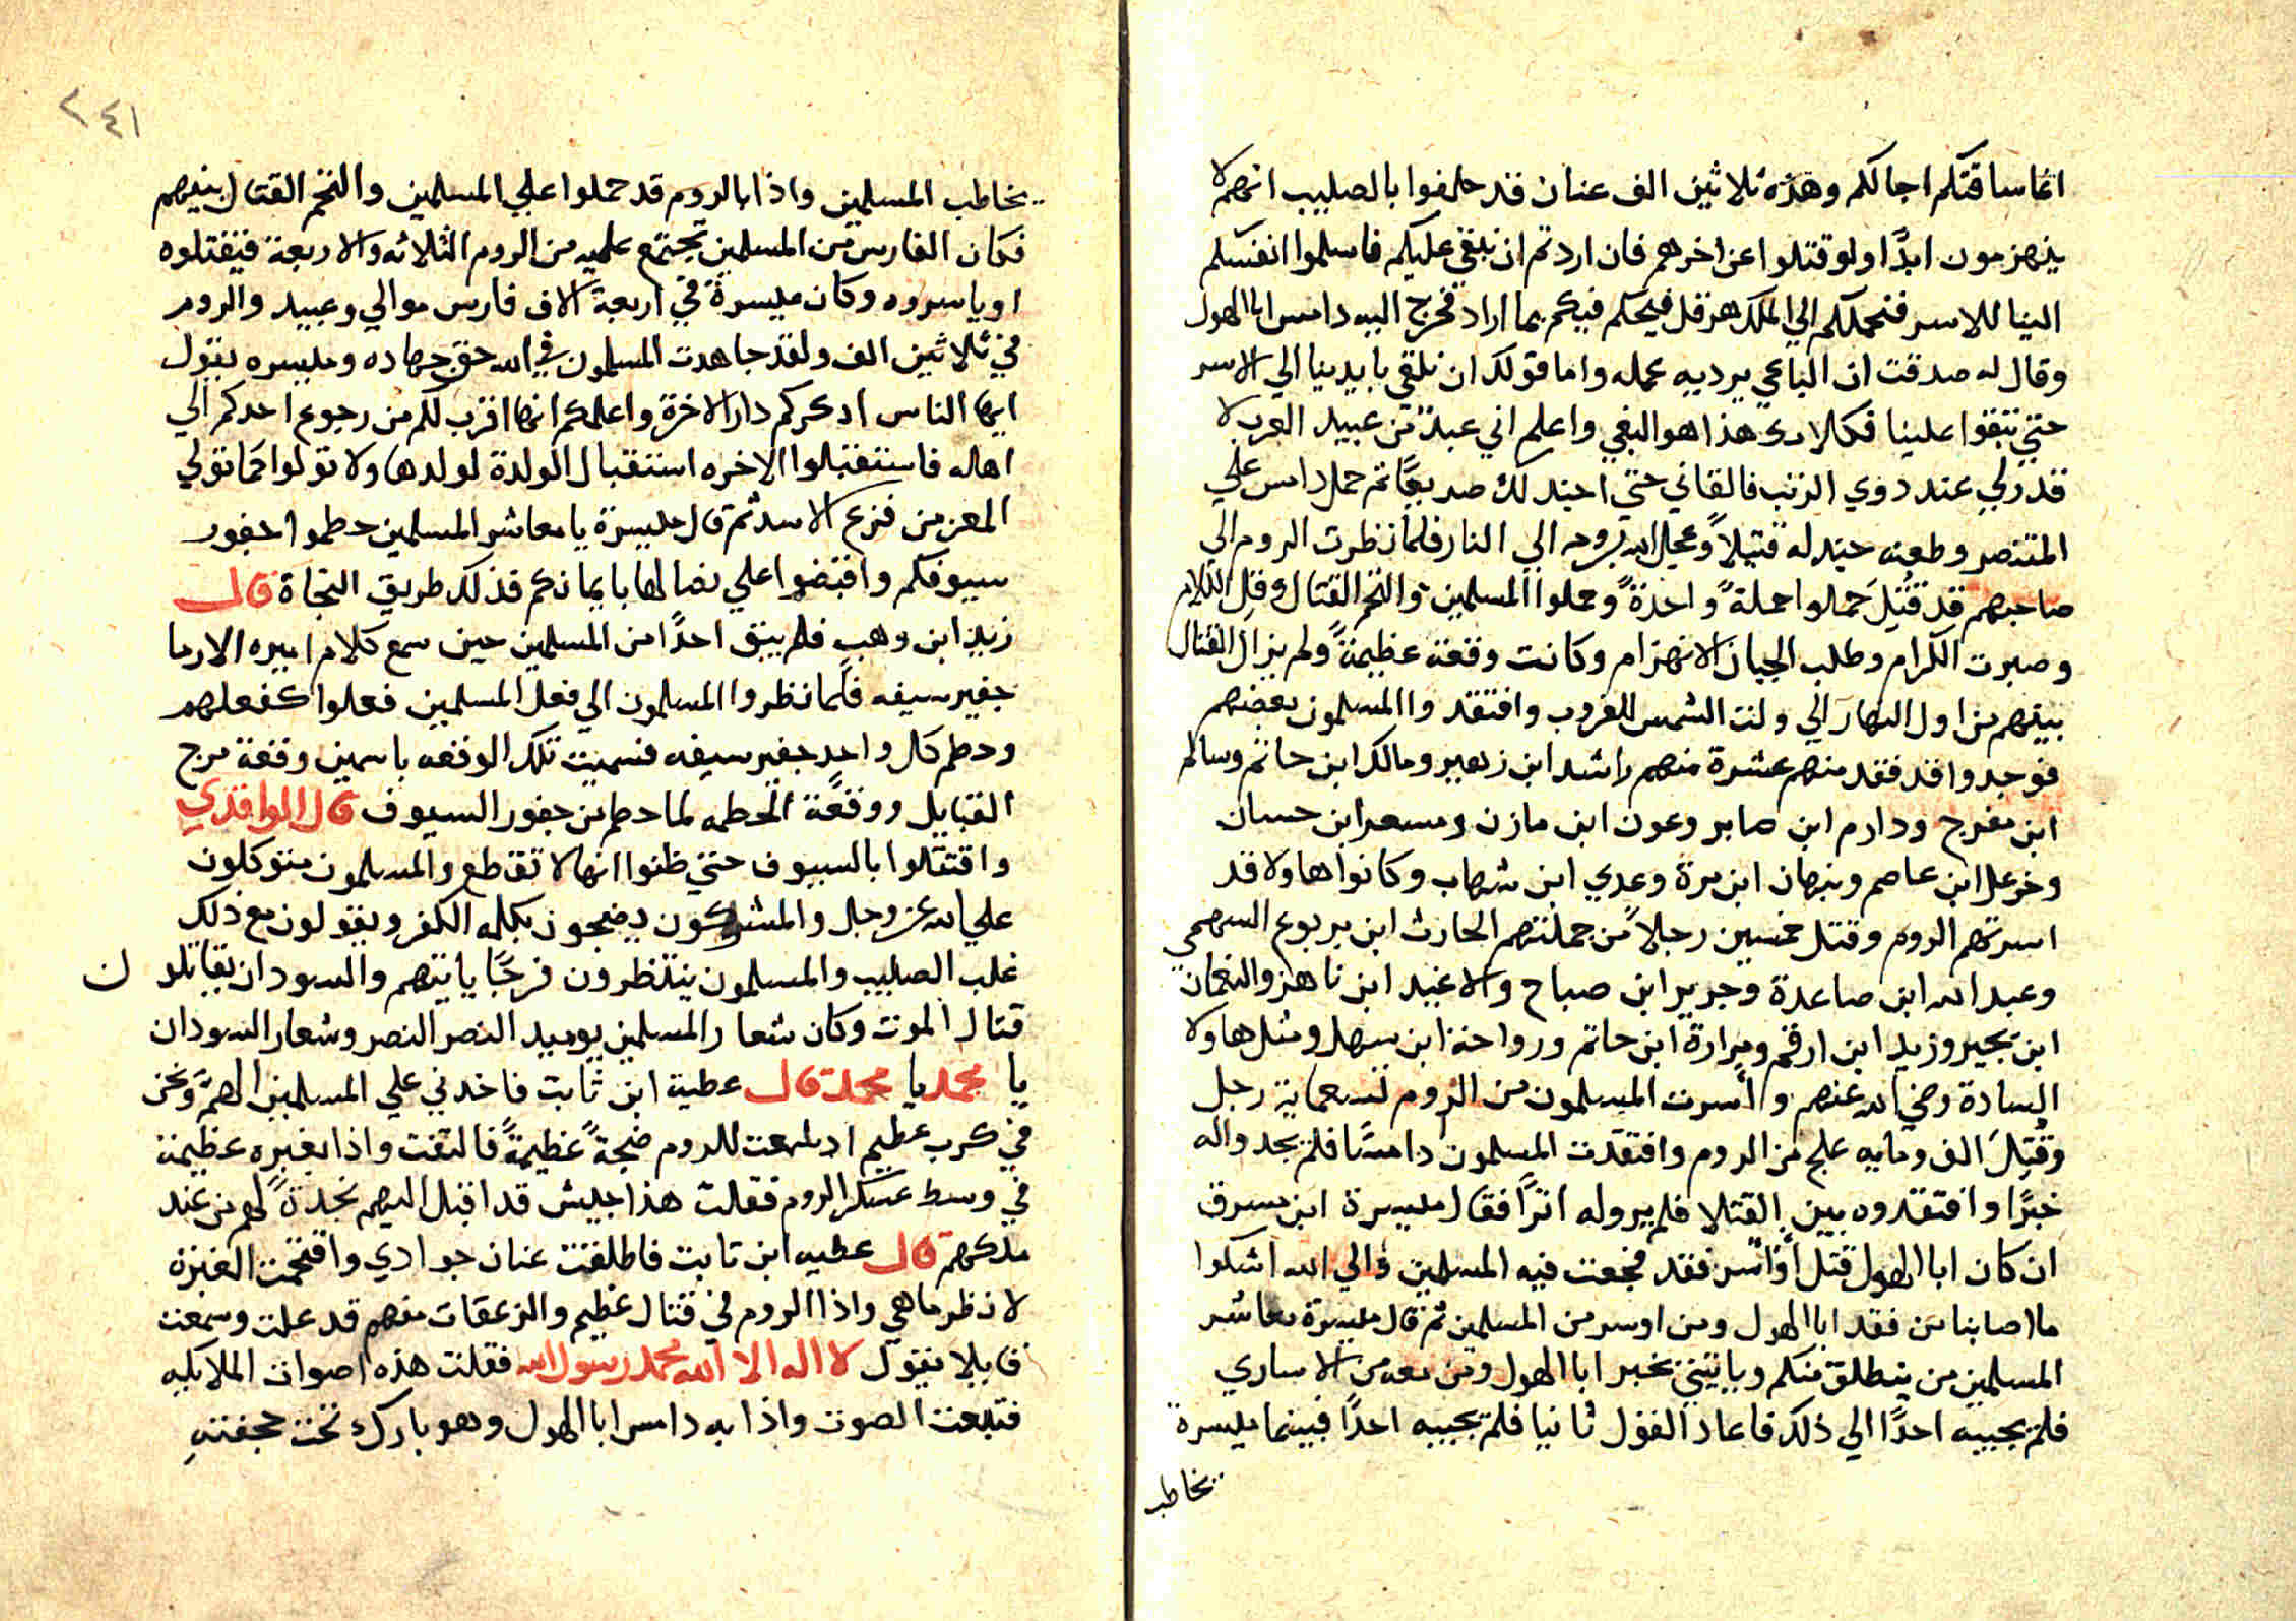 انما ساقتكم اجالكم وهذه ثلاثين الف عنان قد حلفوا بالصليب انهم لا
ينهزمون ابدًا ولو قتلوا عن اخرهم فان اردتم ان نبقي عليكم فاسلموا انفسكم
الينا للاسر فنحملكم الي الملك هرقل فيحكم فيكم بما اراد فخرج اليه دامس ابا الهول
وقال له صدقت ان الباغي يرديه عمله واما قولك ان نلقي بايدينا الي الاسر
حتي تبقوا علينا فكلامك هذا هو البغي واعلم اني عبدٌ من عبيد العرب لا
قدر لي عند دوي الرتب فالقاني حتي اجندلك صريعًا ثم حمل دامس علي
المتنصر وطعنه جندله قتيلاً وعجل الله بروحه الي النار فلما نظرت الروم الي
صاحبهم قد قُتِلَ حملوا حملةً واحدةً وحملوا المسلمين والتحم القتال وقل الكلام
وصبرت الكرام وطلب الجبان الانهزام وكانت وقعة عظيمةً ولم يزال القتال
بينهم من اول النهار الي ولت الشمس للغروب وافتقدوا المسلمون بعضهم
فوجدوا قد فقد منهم عشرة منهم راشد ابن زهير ومالك ابن حاتم وسالم
ابن مفرج ودارم ابن صابر وعون ابن مازن ومسعر ابن حسان
وخزعل ابن عاصم ونبهان ابن مرة وعدي ابن شهاب وكانوا هاولا قد
اسرتهم الروم وقتل خمسين رجلاً من جملتهم الحارث ابن يربوع السهمي
وعبد الله ابن صاعدة وجرير ابن صباح والاغيد ابن ناهز والنعمان
ابن بجير وزيد ابن ارقم ومرارة ابن حاتم ورواحة ابن سهل ومثل هاولا
السادة رضي الله عنهم واسرت المسلمون من الروم تسعماية رجل
وقُتِلَ الف ومايه علج من الروم وافتقدت المسلمون دامسًا فلم يجدوا له
خبرًا وافتقدوه بين القتلا فلم يروا له اثرًا فقال ميسرة ابن مسرق
ان كان ابا الهول قتل او اسر فقد فجعت فيه المسلمين والي الله اشكوا
ما اصابنا من فقد ابا الهول ومن اوسر من المسلمين ثم قال ميسرة معاشر
المسلمين من ينطلق منكم وياتيني بخبر ابا الهول ومن معه من الاساري
فلم يجيبه احدًا الي ذلك فاعاد القول ثانيا فلم يجيبه احدًا فبينما ميسرة
يخاطب
٢٤١
يخاطب المسلمين واذا بالروم قد حملوا علي المسلمين والتحم القتال بينهم
فكان الفارس من المسلمين تجتمع عليه من الروم الثلاثه والاربعة فيقتلوه
او ياسروه وكان ميسرة في اربعة الاف فارس موالي وعبيد والروم
في ثلاثين الف ولقد جاهدت المسلمون في الله حق جهاده وميسره يقول
ايها الناس ادكركم دار الاخرة واعلمكم انها اقرب لكم من رجوع احدكم الي
اهاله فاستقبلوا الاخره استقبال الوالدة لولدها ولا تولوا كما تولي
المعز من فزع الاسد ثم قال ميسرة يا معاشر المسلمين حطموا جفور
سيوفكم واقبضوا علي نصالها بايمانكم فذلك طريق النجاة قال
زيد ابن وهب فلم يبق احدًا من المسلمين حين سمع كلام اميره الا رما
جفير سيفه فلما نظروا المسلمون الي فعل المسلمين فعلوا كفعلهم
وحطم كل واحد جفير سيفه فسميت تلك الوقعه باسمين وقعة مرج
القبايل ووقعة الحطمه لما حطم من جفور السيوف قال الواقدي
واقتتلوا بالسيوف حتي ظنوا انها لا تقطع والمسلمون متوكلون
علي الله عز وجل والمشركون يضجون بكلمة الكفر ويقولون مع ذلك
غلب الصليب والمسلمون ينتظرون فرجًا ياتيهم والسودان يقاتلون
قتال الموت وكان شعار المسلمين يوميد النصر النصر وشعار السودان
يا محمد يا محمد قال عطية ابن ثابت فاخدني علي المسلمين الهمَّ ونحن
في كرب عظيم اد سمعت للروم ضجةً عظيمةً فالتفت واذا بغبره عظيمة
في وسط عسكر الروم فقلت هذا جيش قد اقبل اليهم نجدةً لهم من عند
ملكهم قال عطيه ابن ثابت فاطلقت عنان جوادي واقتحمت الغبرة
لانظر ما هي واذا الروم في قتال عظيم والزعقات منهم قد علت وسمعت
قايلا يقول لا اله الا الله محمد رسول الله فقلت هذه اصوات الملايكه
فتبعت الصوت واذا به دامس ابا الهول وهو بارك تحت حجفته